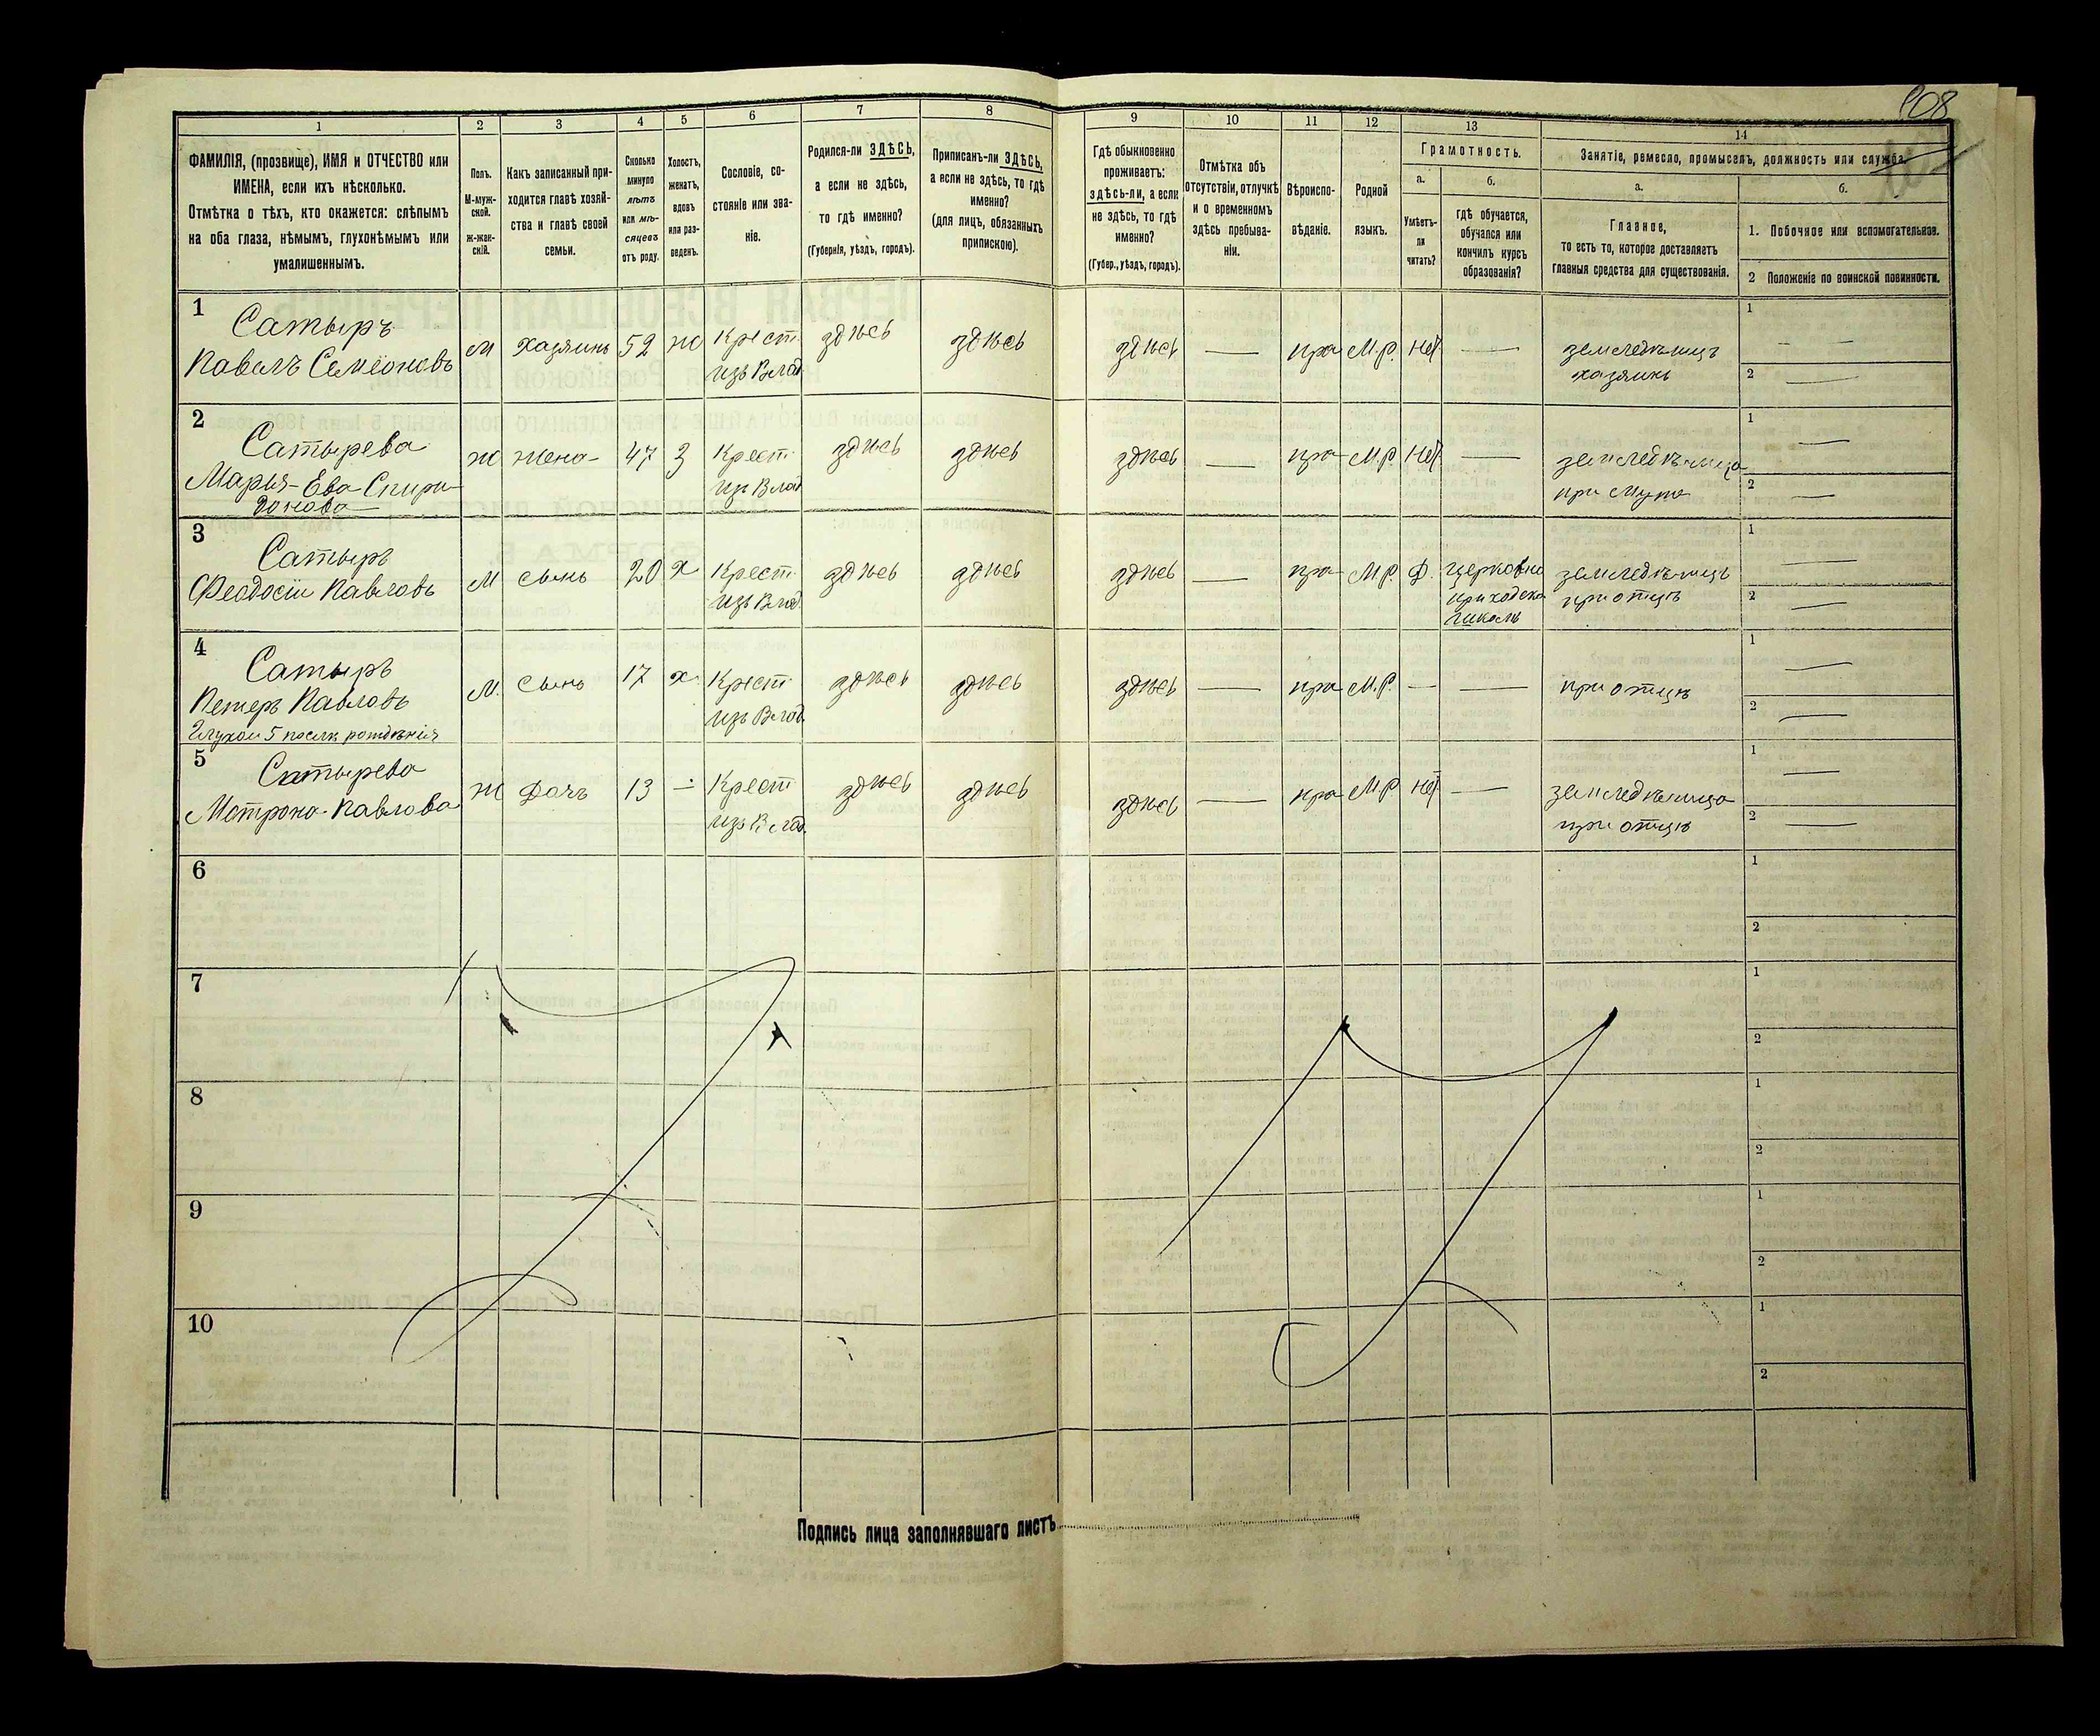 108
1 2 3 4 5 6 7 8 9 10 11 12 13 14
ФАМИЛІЯ, (прозвище), ИМЯ и ОТЧЕСТВО или
ИМЕНА, если ихъ нѣсколько.
Отмѣтка о тѣхъ, кто окажется: слѣпымъ
на оба глаза, нѣмымъ, глухонѣмымъ или
умалишеннымъ.
Полъ.
М-муж-
ской.
Ж-жен-
скій.
Какъ записанный при-
ходится главѣ хозяй-
ства и главѣ своей
семьи.
Сколько
минуло
лѣтъ
или мѣ-
сяцевъ
отъ роду.
Холостъ,
женатъ,
вдовъ
или раз-
веденъ.
Сословіе, со-
стояніе или зва-
ніе.
Родился-ли ЗДѢСЬ,
а если не здѣсь,
то гдѣ именно?
(Губернія, уѣздъ, городъ).
Приписанъ-ли ЗДѢСЬ,
а если не здѣсь, то гдѣ
именно?
(для лицъ, обязанныхъ
припискою).
Гдѣ обыкновенно
проживаетъ:
здѣсь-ли, а если
не здѣсь, то гдѣ
именно?
(Губер., уѣздъ, городъ).
Отмѣтка объ
отсутствіи, отлучкѣ
и о временномъ
здѣсь пребыва-
ніи.
Вѣроиспо-
вѣданіе.
Родной
языкъ.
Грамотность.
а.
Умѣетъ-
ли
читать?
б.
гдѣ обучается,
обучался или
кончилъ курсъ
образованія?
Занятіе, ремесло, промыселъ, должность или служба.
а.
Главное,
то есть то, которое доставляетъ
главныя средства для существованія.
б.
1. Побочное или вспомогательное.
2 Положеніе по воинской повинности.
1
Сатыръ
Павелъ Семёоновъ
М хазяинъ 52 ж Крест.
изъ Влад.
здѣсь здѣсь здѣсь — пра М.Р. нет —
земледѣлецъ
хазяинъ
1 —
2 —
2
Сатырева
Марья-Ева Спири-
донова
ж жена 47 з Крест.
изъ Влад
здѣсь здѣсь здѣсь — пра М.Р. нет —
земледѣлица
при мужѣ
1 —
2 —
3
Сатыръ
Феодосій Павловъ
М сынъ 20 х Крест.
изъ Влад.
здѣсь здѣсь здѣсь — пра М.Р. Ф.
церковно
приходско
школѣ
земледѣлецъ
при отцѣ
1 —
2 —
4
Сатыръ
Петеръ Павловъ
Глухой 5 послѣ рождѣнія
М. сынъ 17 х Крест.
изъ Влад.
здѣсь здѣсь здѣсь — пра М.Р. — —
при отцѣ
1 —
2 —
5
Сатырева
Мотрона Павлова
Ж дочъ 13 — Крест
изъ Влад.
здѣсь здѣсь здѣсь — пра М.Р нет —
земледѣлица
при отцѣ
1 —
2 —
6
1
2
7
1
2
8
1
2
9
1
2
10
1
2
Подпись лица заполнявшаго листъ